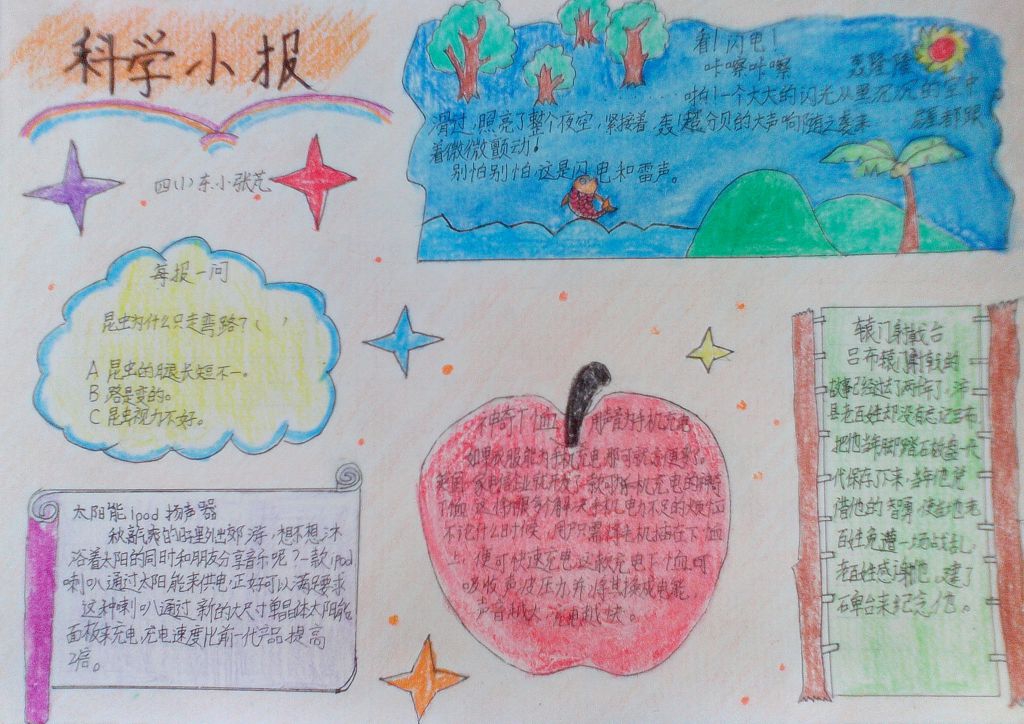 科学小报
四(1)东小张芃
看！闪电！
咔嚓咔嚓 轰隆隆
啪！一个大大的闪光从黑沉沉的空中
滑过，照亮了整个夜空，紧接着，轰！超分贝的大声响随之袭来
着微微颤动！
别怕别怕，这是闪电和雷声。
每报一问
昆虫为什么只走弯路？（ ）
A 昆虫的腿长短不一。
B 路是变的。
C 昆虫视力不好。
太阳能 ipod 扬声器
秋高气爽的日子里外出郊游，想不想沐
浴着太阳的同时和朋友分享音乐呢？一款ipod
喇叭通过太阳能来供电正好可以满足要求
这种喇叭通过新的大尺寸单晶体太阳能
面板来充电，充电速度比前一代产品提高
2倍。
神奇T恤 用声音为手机充电
如果衣服能为手机充电那可就方便多了。
英国一家通信企业就开发了一款可为手机充电的神奇
T恤 这将很多个解决手机电力不足的烦恼
不论什么时候，用户只需将手机插在T恤
上，便可快速充电 这款充电T恤可
吸收声波压力，并将其换成电能
声音越大，充电越快。
辕门射戟台
吕布辕门射戟的
故事已经过了两千年了，沛
县老百姓却没有忘记吕布
把他当年脚踏石鼓一代
代保存了下来，当年他凭
借他的智勇，使当地老
百姓免遭一场战乱
老百姓感谢他。建了
石碑台来纪念他。